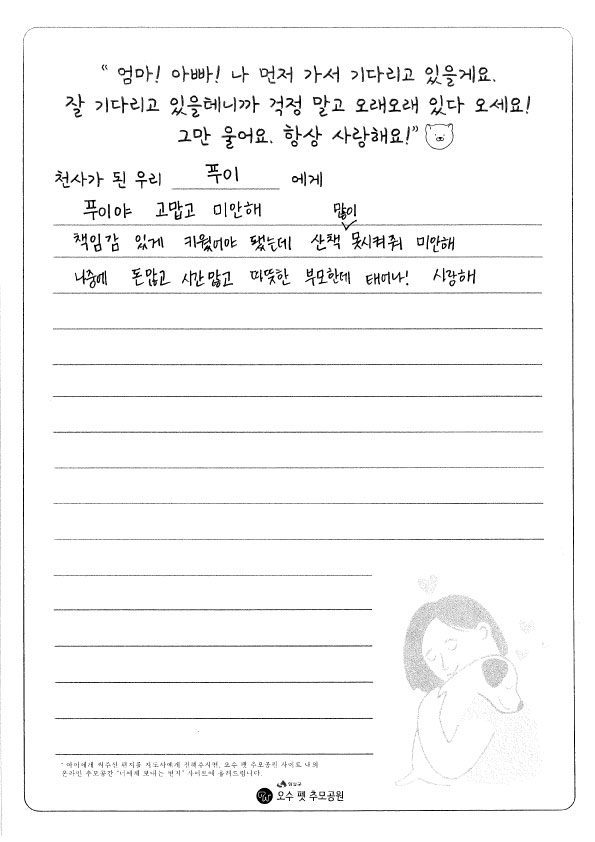 “ 엄마! 아빠! 나 먼저 가서 기다리고 있을게요.
잘 기다리고 있을테니까 걱정 말고 오래오래 있다 오세요!
그만 울어요. 항상 사랑해요!”
천사가 된 우리 푸이 에게
푸이야 고맙고 미안해
많이
책임감 있게 키웠어야 됐는데 산책 못시켜줘 미안해
나중에 돈많고 시간많고 따뜻한 부모한데 태어나! 사랑해
* 아이에게 써주신 편지를 지도사에게 전해주시면, 오수 펫 추모공원 사이트 내의
온라인 추모공간 "너에게 보내는 편지" 사이트에 올려드립니다.
임실군
오수 펫 추모공원